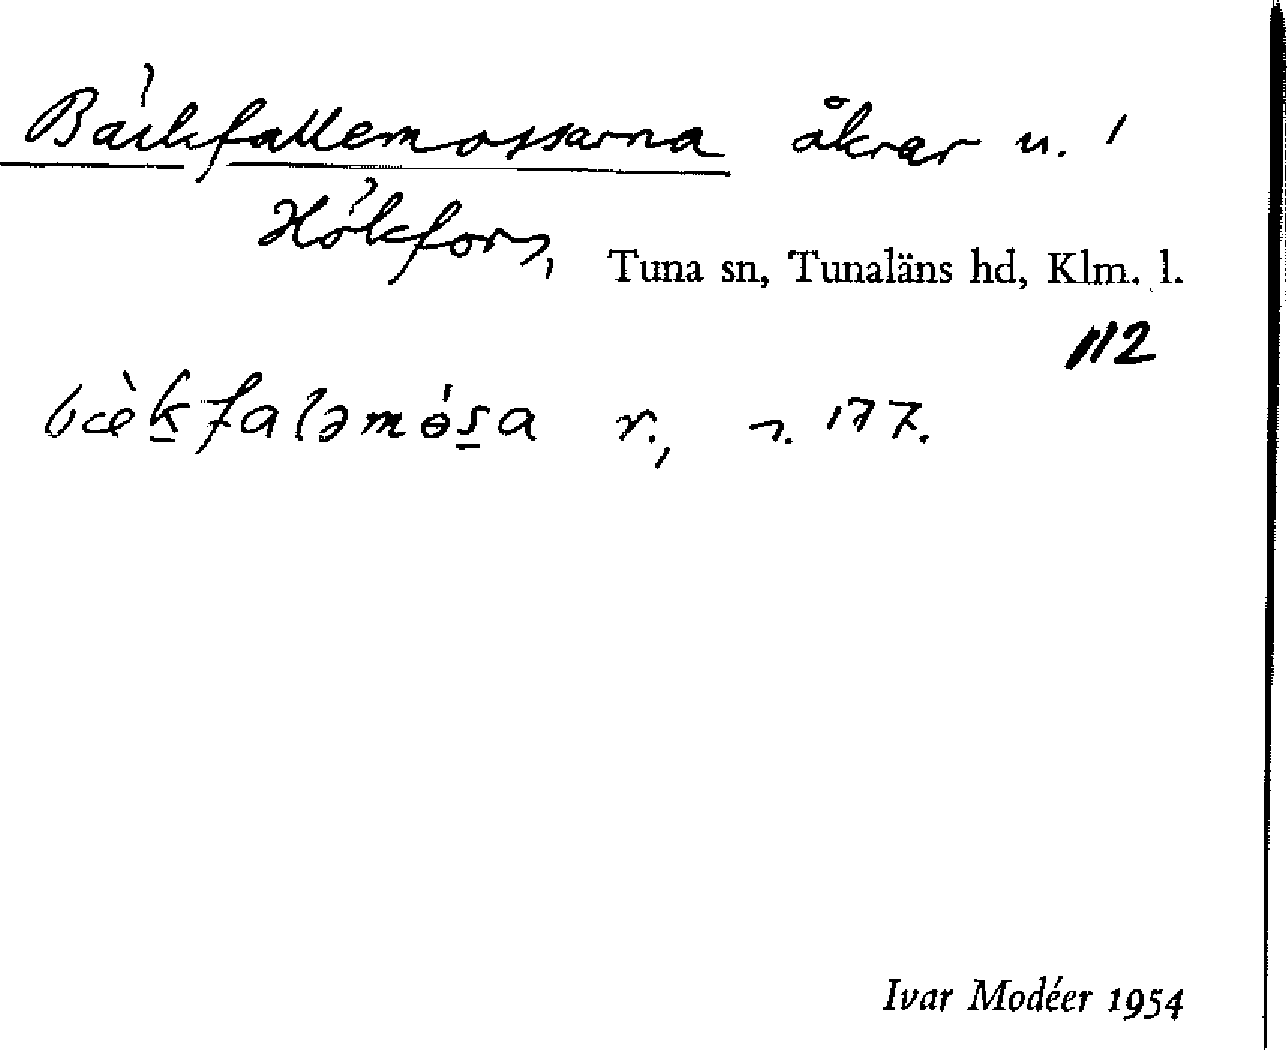 Bäckfallemossarna åkrar u. 1
Hökfors,
Tuna sn, Tunaläns hd, Klm. l.
112
bæ̀k̲faləmɵ́s̲a r., s. 177.
Ivar Modéer 1954